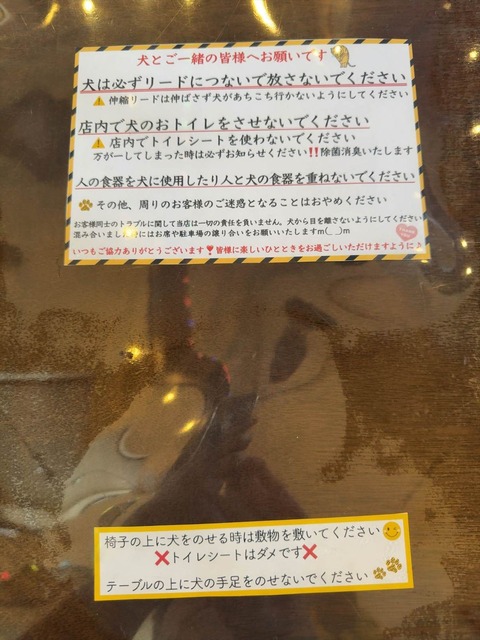 犬とご一緒の皆様へお願いです
犬は必ずリードにつないで放さないでください
⚠伸縮リードは伸ばさず犬があちこち行かないようにしてください
店内で犬のおトイレをさせないでください
⚠店内でトイレシートを使わないでください
万が一してしまった時は必ずお知らせください‼除菌消臭いたします
人の食器を犬に使用したり人と犬の食器を重ねないでください
🐾その他、周りのお客様のご迷惑となることはおやめください
お客様同士のトラブルに関して当店は一切の責任を負いません。犬から目を離さないようにしてください
混み合いました時にはお席や駐車場の譲り合いをお願いいたしますm(_ _)m
いつもご協力ありがとうございます❣皆様に楽しいひとときをお過ごしいただけますように♪
椅子の上に犬をのせる時は敷物を敷いてください
❌トイレシートはダメです❌
テーブルの上に犬の手足をのせないでください